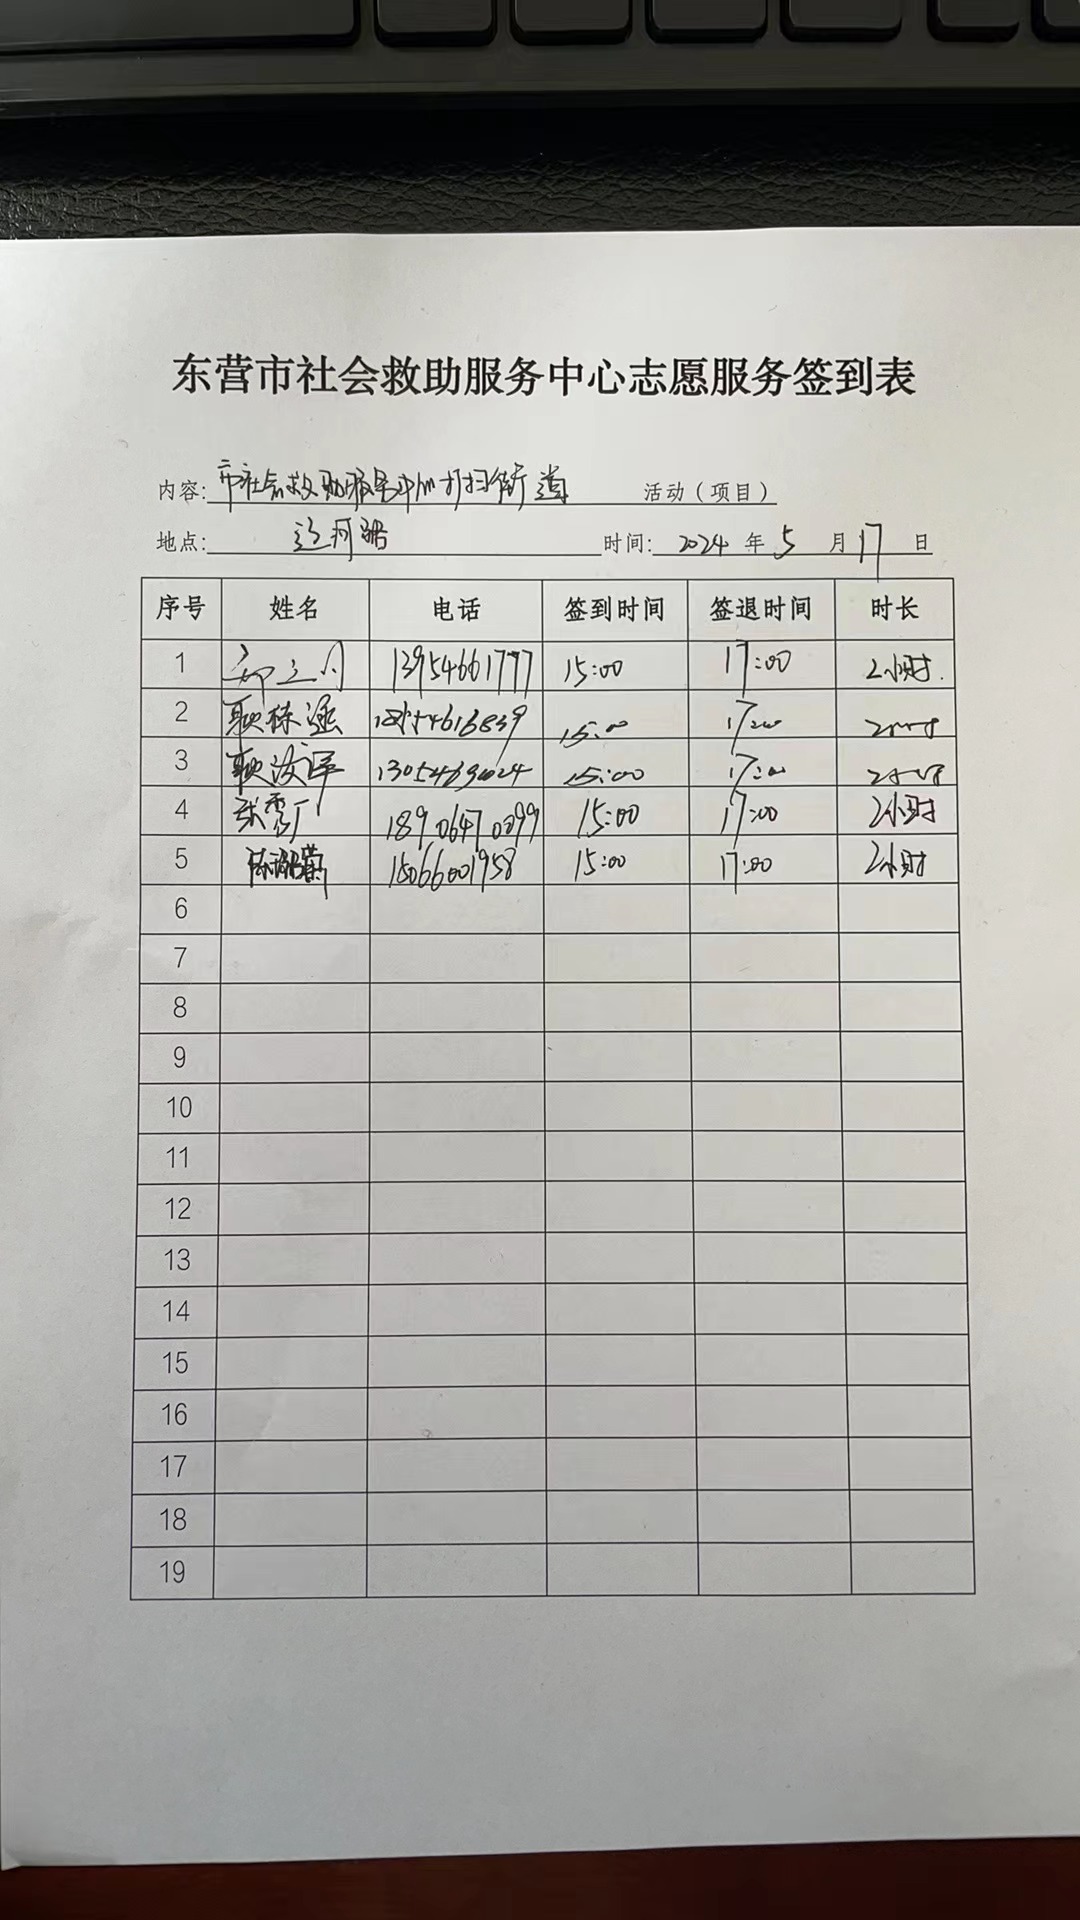 东营市社会救助服务中心志愿服务签到表
内容: 市社会救助服务中心打扫街道 活动（项目）
地点: 辽河路 时间: 2024 年 5 月 17 日
序号 姓名 电话 签到时间 签退时间 时长
1 13954661777 15:00 17:00 2小时.
2 15:00 17:00 2小时
3 15:00 17:00 2小时
4 张秀广 15:00 17:00 2小时
5 15066001958 15:00 17:00 2小时
6
7
8
9
10
11
12
13
14
15
16
17
18
19